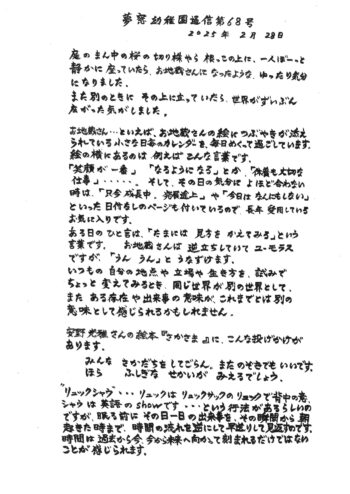 夢窓幼稚園通信第68号
2025年 2月 28日
庭の まん中の桜の 切り株やら 根っこの上に、一人ぼーっと
静かに 座っていたら、お地蔵さんに なったような、ゆったり気分
になりました。
また 別のときに その上に立っていたら、世界がずいぶん
広がった気がしました。
お地蔵さん…といえば、お地蔵さんの 絵に つぶやきが 添え
られている 小さな日毎のカレンダーを 毎日めくって過ごしています。
絵の横にあるのは 例えば こんな言葉です。
「笑顔が一番」 「なるようになる」とか、「休養も大切な
仕事」‥‥‥。そして、その日の気分に よほど合わない
時は、「只今 成長中、発展途上」や「今日は なんにもしない」
といった 日付なしのページも付いているので 長年 愛用している
お気に入りです。
ある日の ひと言は、「たまには 見方を かえてみる」という
言葉です。 お地蔵さんは 逆立ちしていて ユーモラス
ですが、「うん うん」と うなずけます。
いつもの 自分の 地点や 立場や 生き方を、試みで
ちょっと 変えてみるとき、同じ世界が 別の世界として、
また ある存在や 出来事の 意味が、これまでとは 別の
意味として 感じられるかもしれません。
安野光雅さんの絵本『さかさま』に、こんな投げかけが
あります。
みんな さかだちをしてごらん。またのぞきでも いいです。
ほら ふしぎな せかいが みえるでしょう。
"リュックシャウ"・・・リュックは リュックサックの リュックで 背中の意、
シャウは 英語の showです・・・という 行法が あるらしいの
ですが、眠る前に その日一日の 出来事を、その瞬間から 朝
起きた時まで、時間の流れを 逆にして 早送りして 見返すのです。
時間は 過去から今、今から未来へ向かって 刻まれるだけではない
ことが 感じられます。